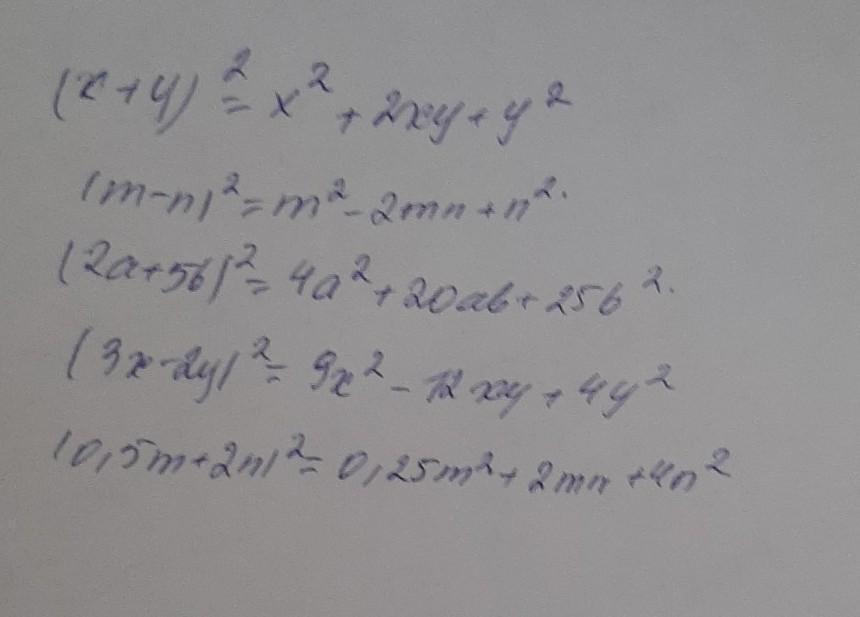 (x+y)² = x² + 2xy + y²
(m-n)² = m² - 2mn + n².
(2a+5b)² = 4a² + 20ab + 25b².
(3x-2y)² = 9x² - 12xy + 4y²
(0,5m+2n)² = 0,25m² + 2mn + 4n²